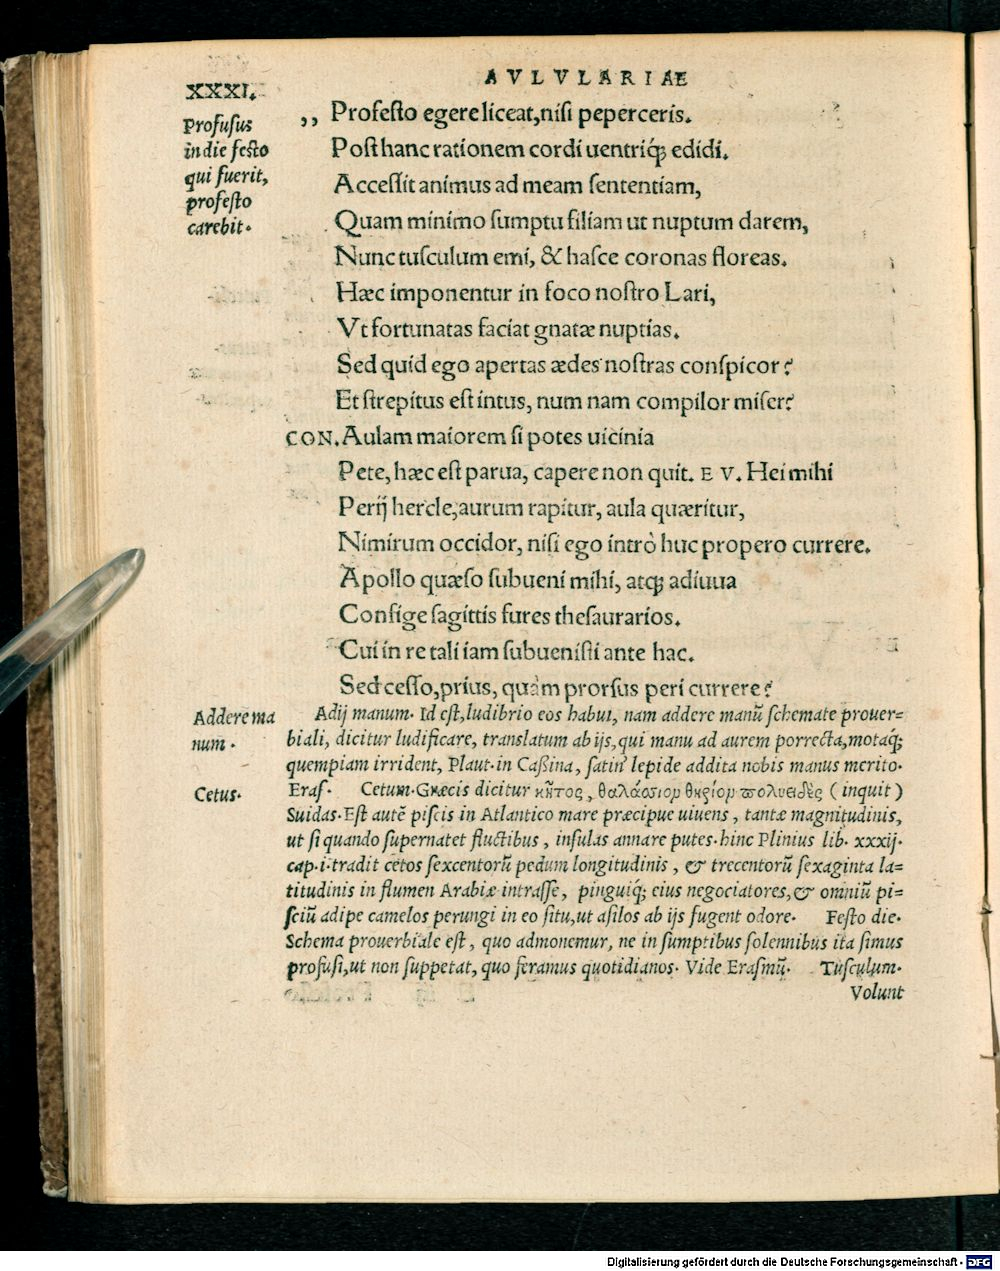 AVLVLARIAE
XXXI.
Profusus
in die festo
qui fuerit,
profesto
carebit.
,, Profesto egere liceat, nisi peperceris.
Post hanc rationem cordi uentriq́; edidi.
Accessit animus ad meam sententiam,
Quam minimo sumptu filiam ut nuptum darem,
Nunc tusculum emi, & hasce coronas floreas.
Hæc imponentur in foco nostro Lari,
Vt fortunatas faciat gnatæ nuptias.
Sed quid ego apertas ædes nostras conspicor?
Et strepitus est intus, num nam compilor miser?
CON. Aulam maiorem si potes uicinia
Pete, hæc est parua, capere non quit. EV. Hei mihi
Perij hercle, aurum rapitur, aula quæritur,
Nimirum occidor, nisi ego intrò huc propero currere.
Apollo quæso subueni mihi, atq; adiuua
Confige sagittis fures thesaurarios.
Cui in re tali iam subuenisti ante hac.
Sed cesso, prius, quàm prorsus peri currere?
Addere ma
num.
Adij manum. Id est, ludibrio eos habui, nam addere manū schemate prouer=
biali, dicitur ludificare, translatum ab ijs, qui manu ad aurem porrecta, motaq́;
quempiam irrident, Plaut. in Caßina, satin' lepide addita nobis manus merito.
Cetus.
Eras. Cetum. Græcis dicitur κῆτος, θαλάσσιον θηρίον πολυειδὲς (inquit)
Suidas. Est autē piscis in Atlantico mare præcipue uiuens, tantæ magnitudinis,
ut si quando supernatet fluctibus, insulas annare putes. hinc Plinius lib. xxxij.
cap. i. tradit cetos sexcentorū pedum longitudinis, & trecentorū sexaginta la=
titudinis in flumen Arabiæ intrasse, pinguiq́; eius negociatores, & omniū pi=
sciū adipe camelos perungi in eo situ, ut asilos ab ijs fugent odore. Festo die.
Schema prouerbiale est, quo admonemur, ne in sumptibus solennibus ita simus
profusi, ut non suppetat, quo feramus quotidianos. Vide Erasmū. Tusculum.
Volunt
Digitalisierung gefördert durch die Deutsche Forschungsgemeinschaft - DFG